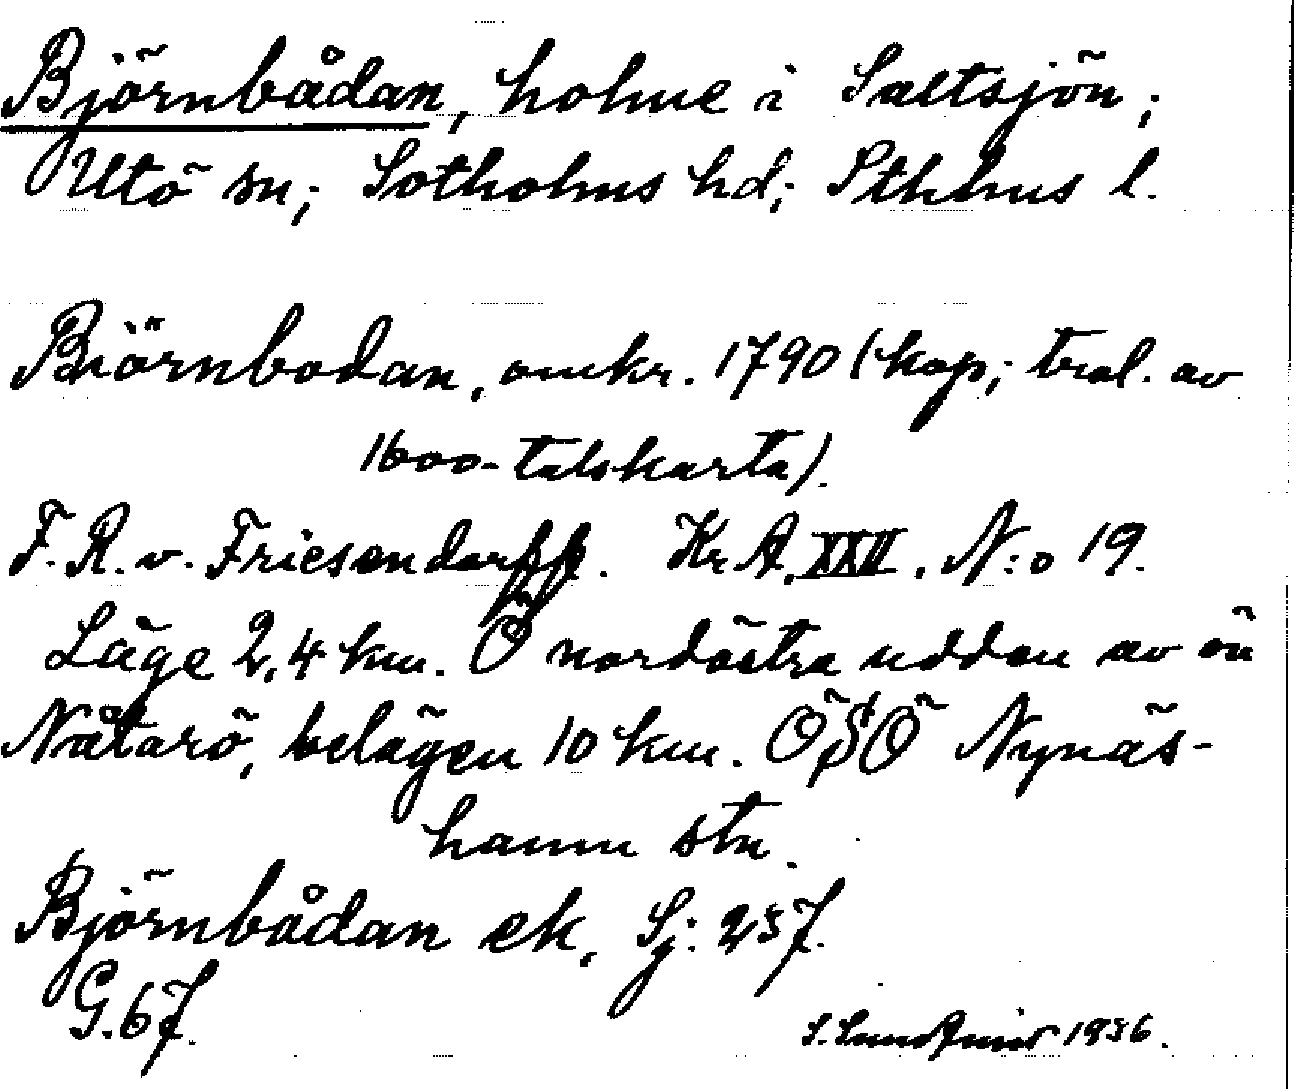 Björnbådan, holme i Saltsjön;
Utö sn; Sotholms hd; Sthlms l.
Biörnbodan, omkr. 1790 (kop; trol. av
1600-talskarta).
F. R. v. Friesendorff. Kr. A. XXII. N:o 19.
Läge 2,4 km. Ö nordöstra udden av ön
Nåtarö, belägen 10 km. ÖSÖ Nynäs-
hamn stn.
Björnbådan ek, Sj: 257.
G. 67.
1936.